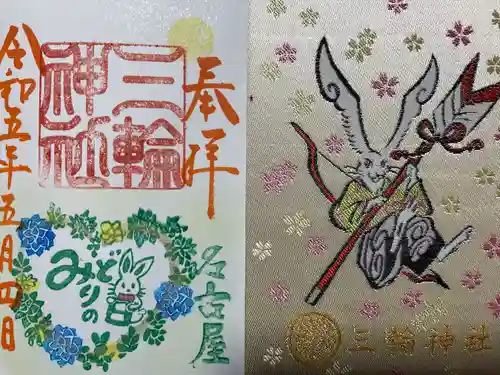 奉拝
三輪
神社
令和五年五月四日
みどりの
日
名古屋
三輪神社